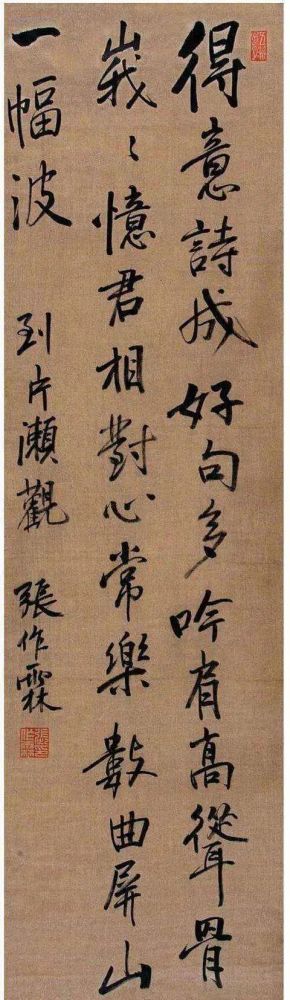 得意詩成好句多吟肩高聳骨
峨〻憶君相對心常樂數曲屏山
一幅波
到片瀨觀 張作霖